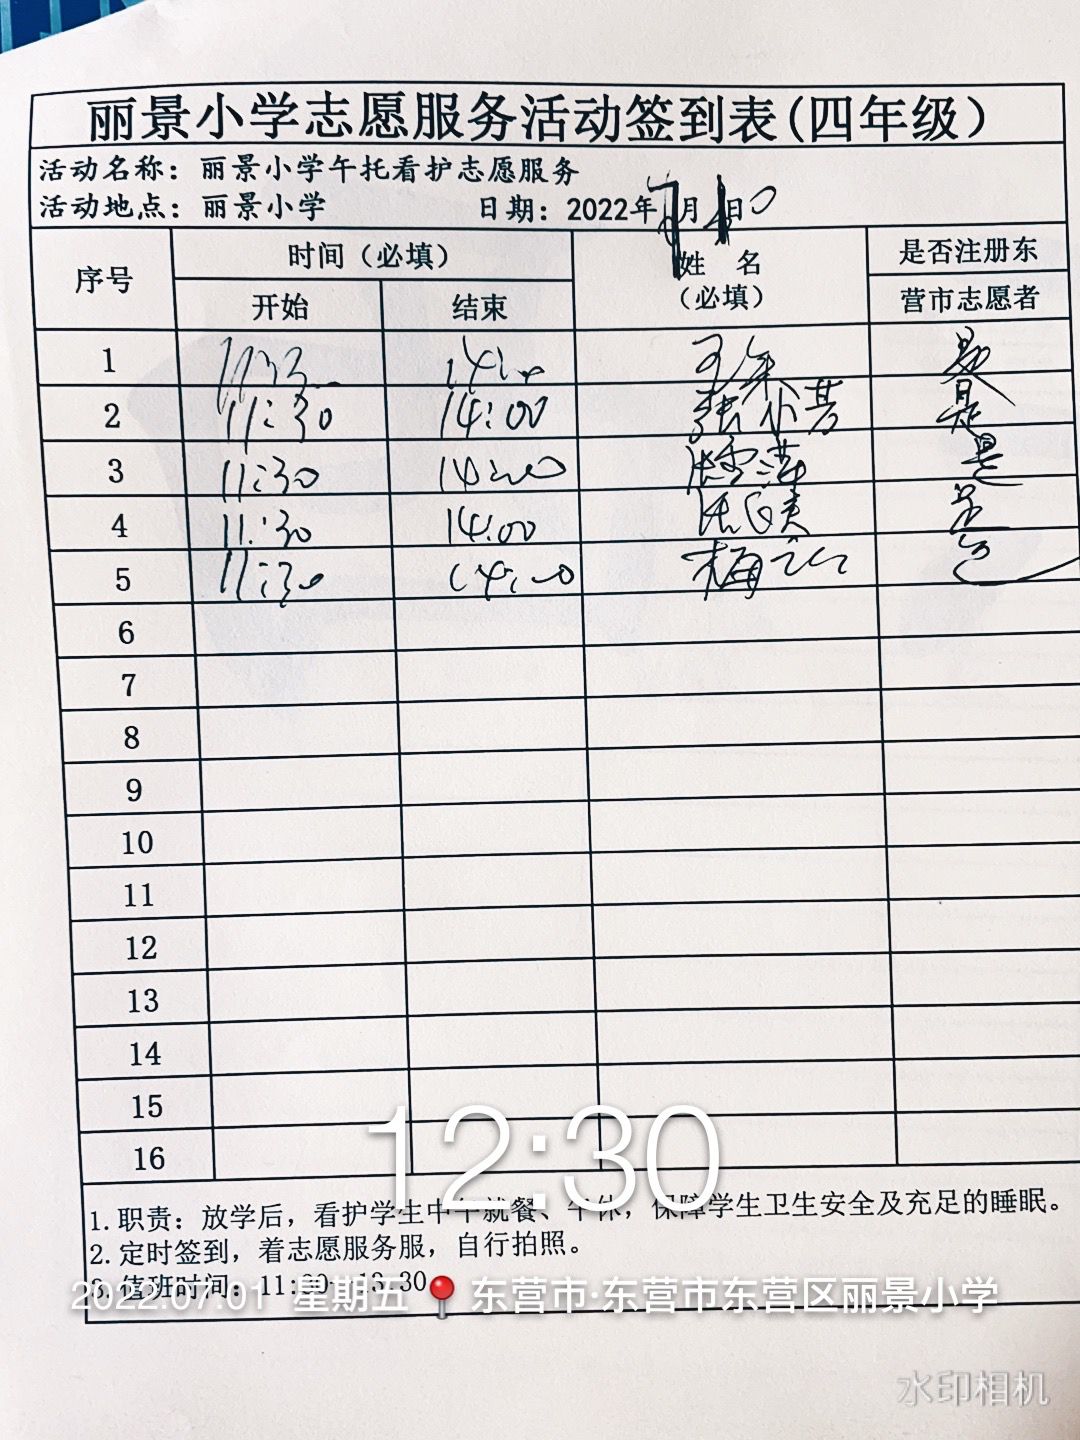 丽景小学志愿服务活动签到表(四年级)
活动名称：丽景小学午托看护志愿服务
活动地点：丽景小学 日期：2022年7月1日
序号 时间（必填） 姓名（必填） 是否注册东营市志愿者
开始 结束
1 是
2 11:30 14:00 是
3 11:30 14:00 是
4 11:30 14:00 是
5 11:30 14:00 梅 是
6
7
8
9
10
11
12
13
14
15
16
12:30
1.职责：放学后，看护学生中午就餐、午休，保障学生卫生安全及充足的睡眠。
2.定时签到，着志愿服务服，自行拍照。
3.值班时间：13.30
2022.07.01 星期五 东营市·东营市东营区丽景小学
水印相机